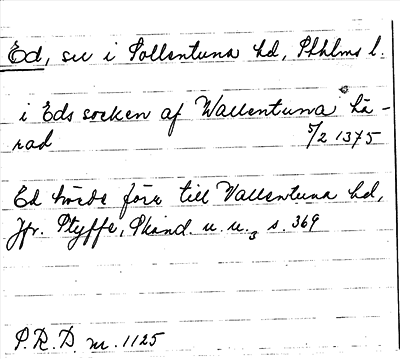 Ed, sn i Sollentuna hd, Sthlms l.
i Eds socken af Wallentuna hä-
rad 5/2 1375
Ed hörde förr till Vallentuna hd,
Jfr. Styffe, Skand. u. u.3 s. 369
S.R.D. nr. 1125